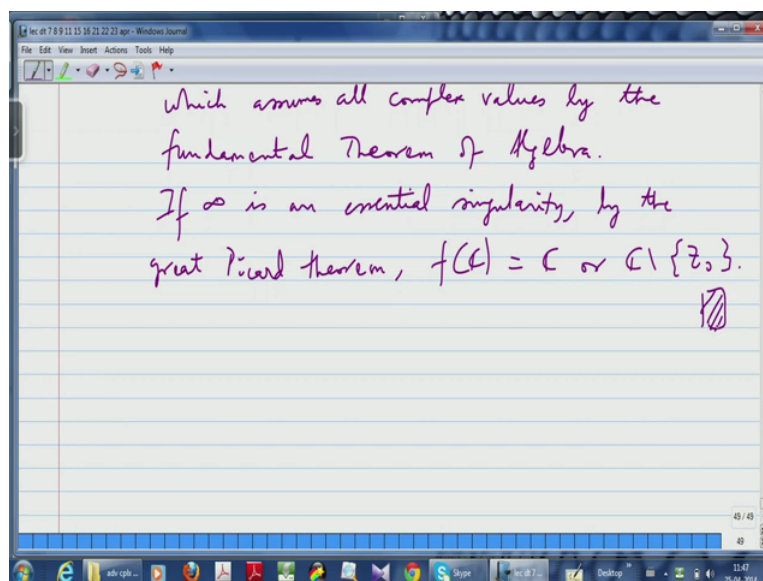 lec dt 7 8 9 11 15 16 21 22 23 apr - Windows Journal
File Edit View Insert Actions Tools Help
which assumes all complex values by the
fundamental Theorem of Algebra.
If ∞ is an essential singularity, by the
great Picard theorem, f(ℂ) = ℂ or ℂ\{z₀}.
49 / 49
49
adv cpls ...
Skype
lec dt 7 ...
Desktop
11:47
25-04-2014